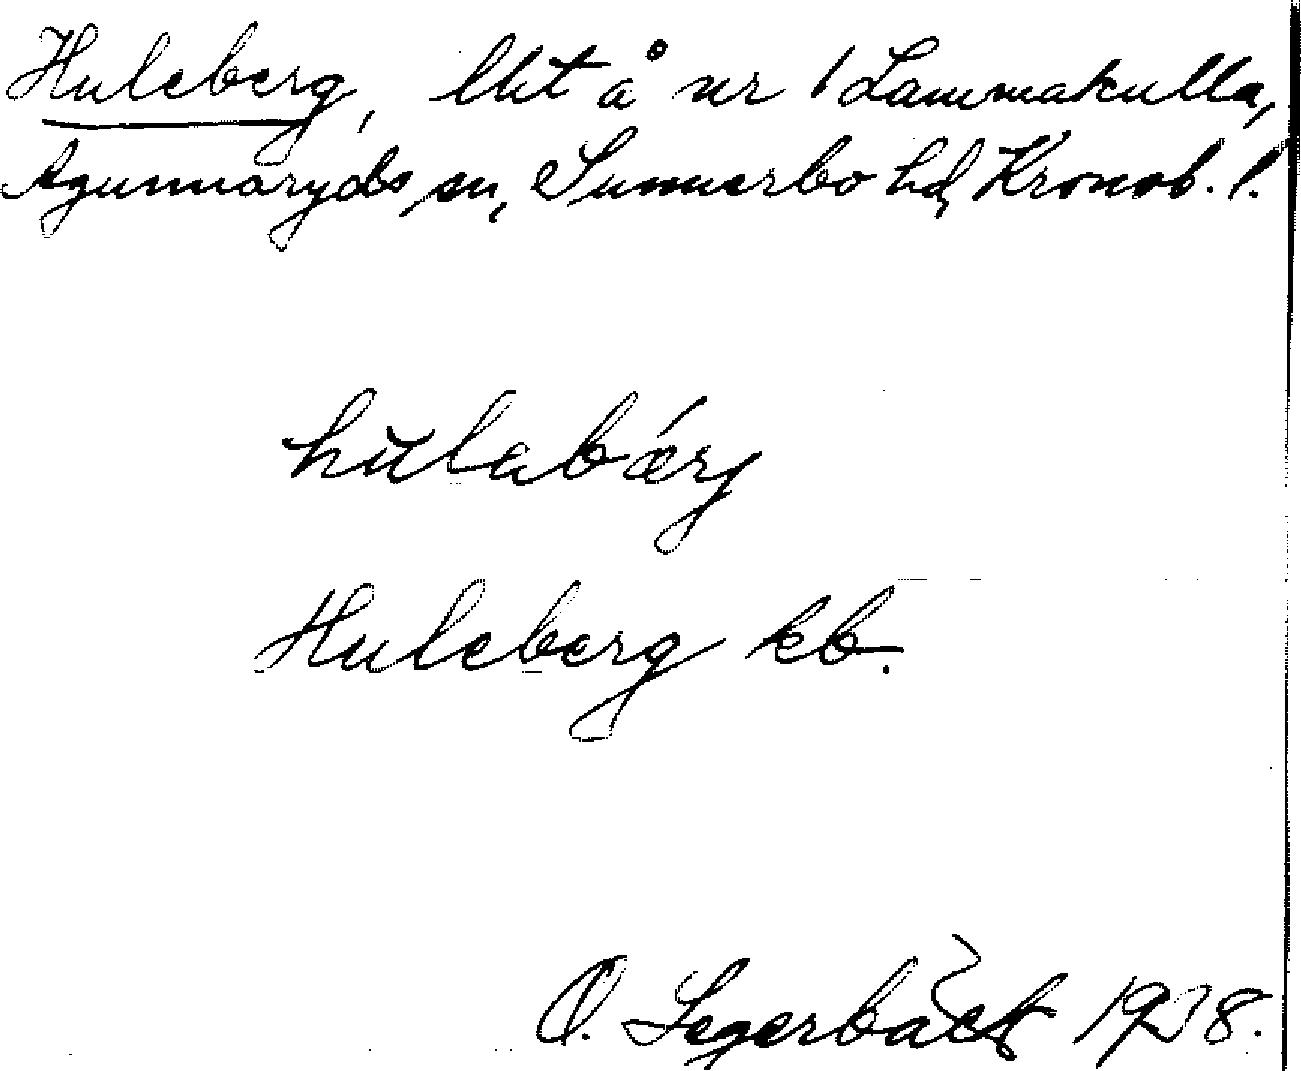 Huleberg, lht å nr 1 Lammakulla,
Agunnaryds sn, Sunnerbo hd, Kronob. l.
hu̇labærj
Huleberg kb.
O. Segerbäck 1938.